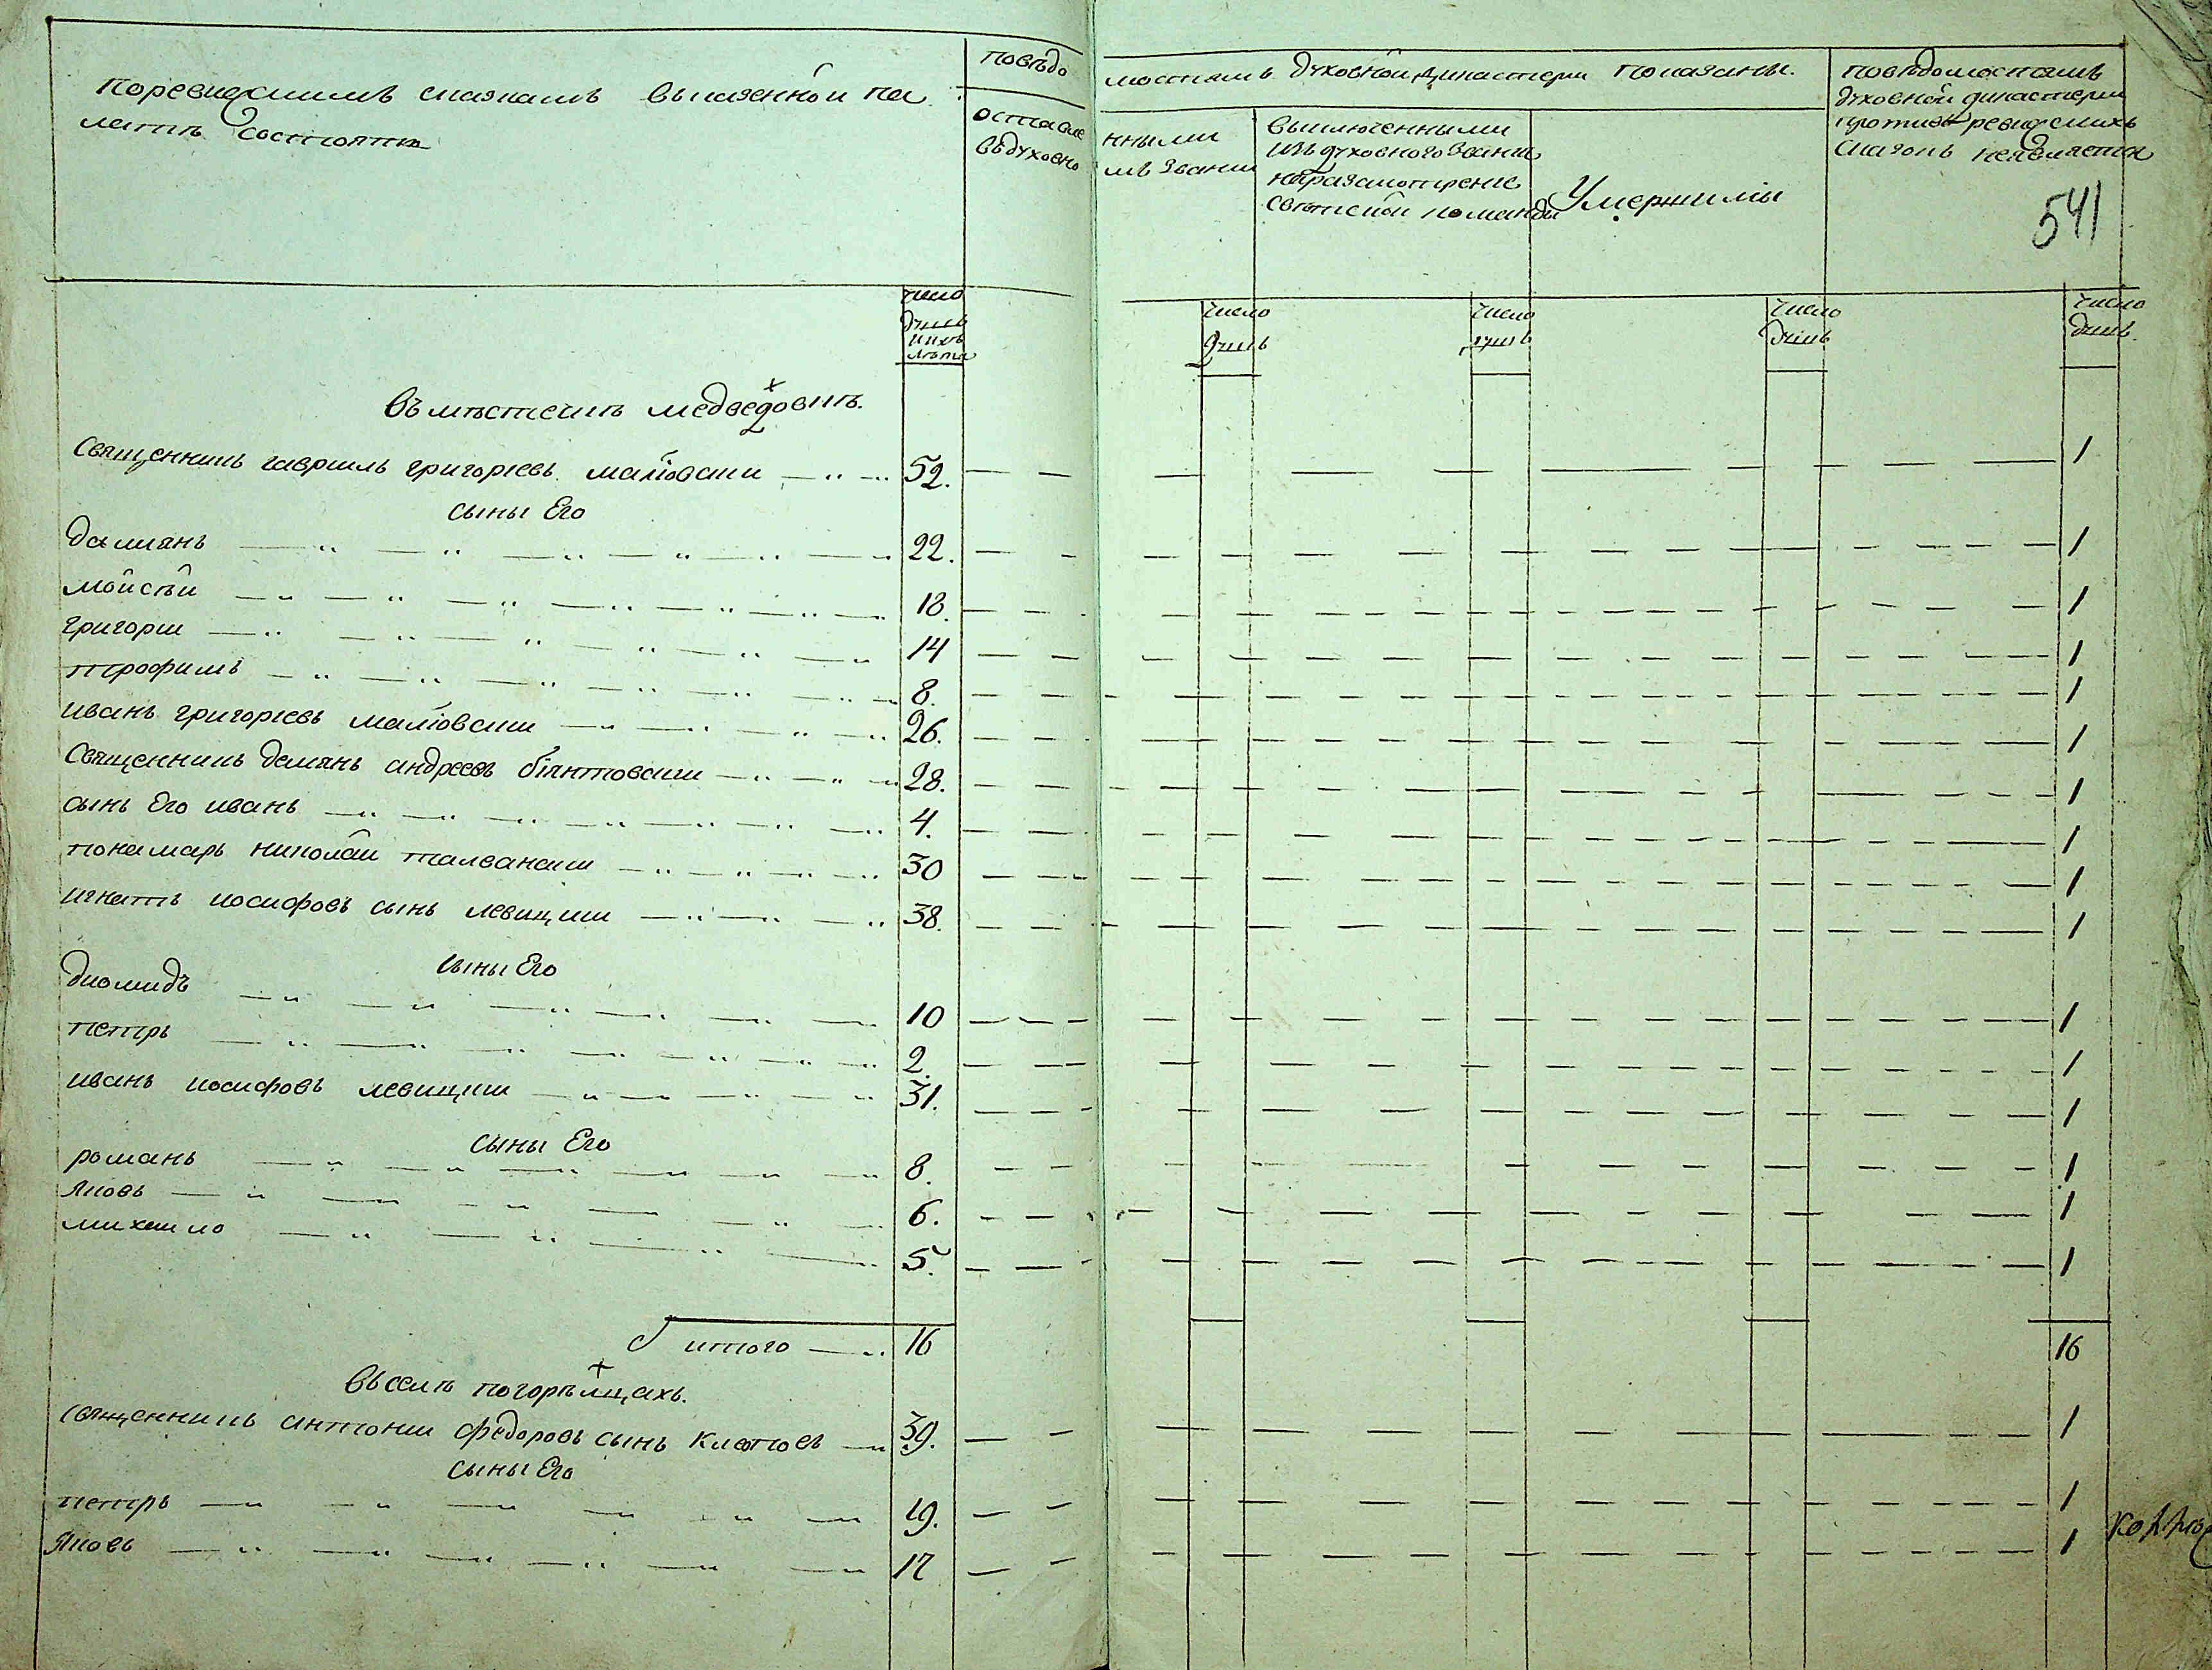 поревизскимъ сказкамъ вьказенной па
латѣ состоятъ
повѣдо
мостамъ духовной дикастерии показаны.
оставле
въдуховно
нными
мъ звании
выключенными
изъ духовного звания
наразсмотрение
свѣтской команды
Умершими
повѣдомостамъ
духовной дикастерии
противъ ревизскихъ
сказокъ неявляется
541
число
душъ
ихъ
лѣта
число
душъ
число
душъ
число
душъ
число
душъ
въ мѣстечкѣ медведовкѣ.
Священникъ гавриилъ григориевъ 52. 1
сыны Его
дамиянъ 22. 1
мойсѣй 18. 1
григорий 14 1
трофимъ 8. 1
иванъ григориевъ 26. 1
Священникъ демянъ андреевъ 28. 1
сынъ Его иванъ 4. 1
понамарь николай 30 1
игнатъ иосифовъ сынъ левицкий 38. 1
сыны Его
диомидъ 10 1
петръ 2. 1
иванъ иосифовъ левицкий 31. 1
сыны Его
романъ 8. 1
яковъ 6. 1
михайло 5. 1
итого 16 16
въселѣ погорѣлцахъ.
священникъ антоний федоровъ сынъ 39. 1
сыны Его
петръ 19. 1
яковъ 17 1